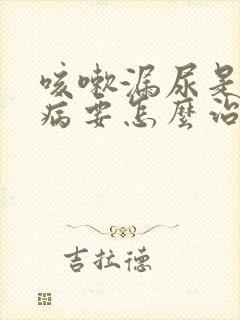 咳嗽漏尿是
病要怎麼治
吉拉德